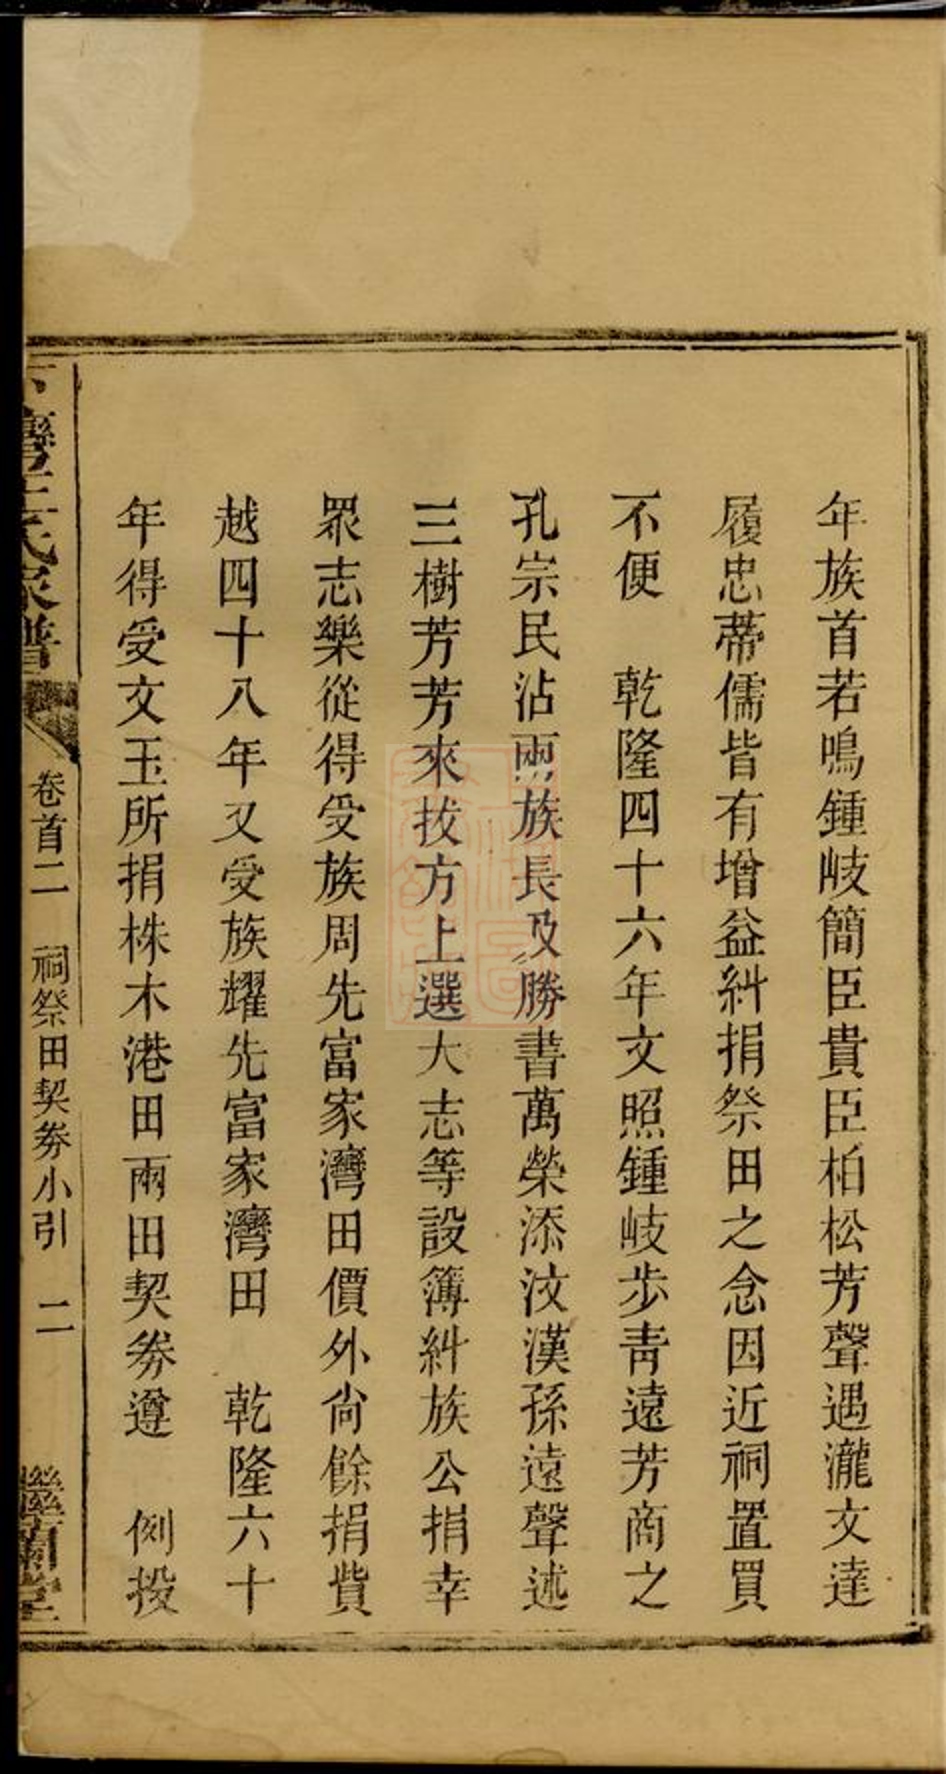 年族首若鳴鍾岐簡臣貴臣柏松芳聲遇瀧文達
履忠蒂儒皆有增益糾捐祭田之念因近祠置買
不便　乾隆四十六年文照鍾岐步青遠芳商之
孔宗民沾兩族長及勝書萬榮添汶漢孫遠聲述
三樹芳芳來拔方上選大志等設簿糾族公捐幸
眾志樂從得受族周先富家灣田價外尙餘捐貲
越四十八年又受族耀先富家灣田　乾隆六十
年得受文玉所捐株木港田兩田契劵遵　例投
灣王氏家譜
卷首二　祠祭田契劵小引　二